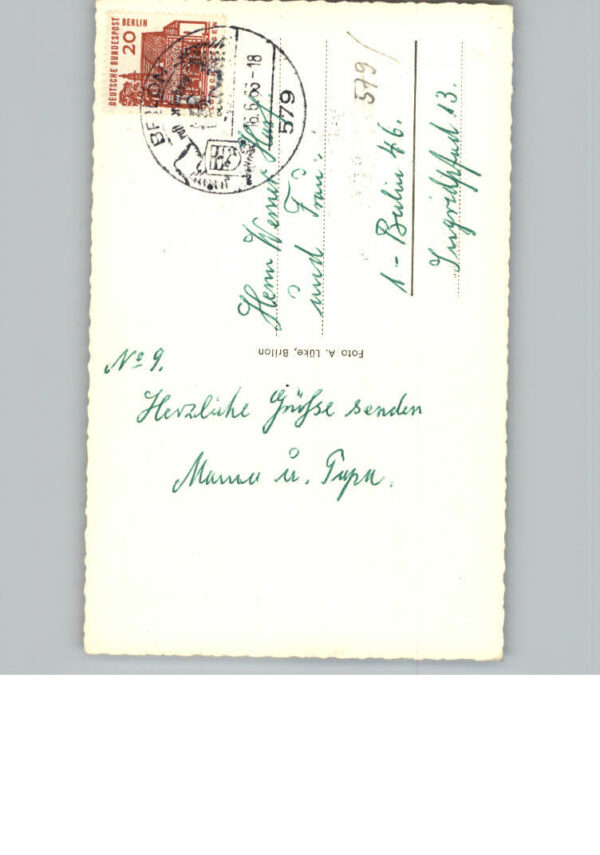 DEUTSCHE BUNDESPOST BERLIN
20
BRILON
16.6.66-18
579
579/
Herrn Werner
und Frau.
1-Berlin 46.
Ingridpfad 13.
Foto A. Lüke, Brilon
No 9.
Herzliche Grüße senden
Mama u. Papa.